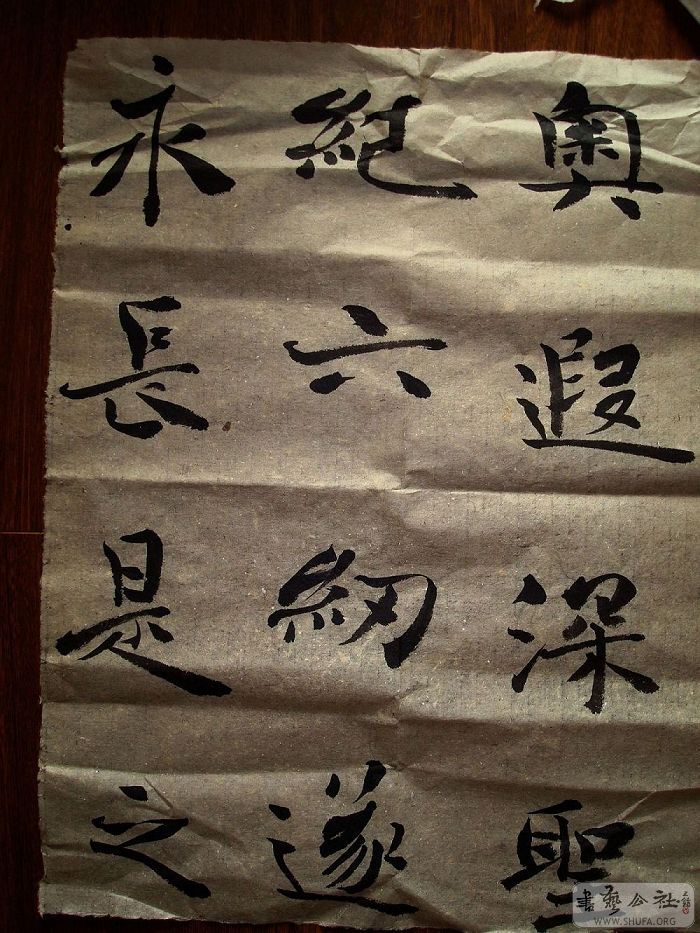 奥遐深聖
紀六紉遂
永長是之
書藝公社
WWW.SHUFA.ORG